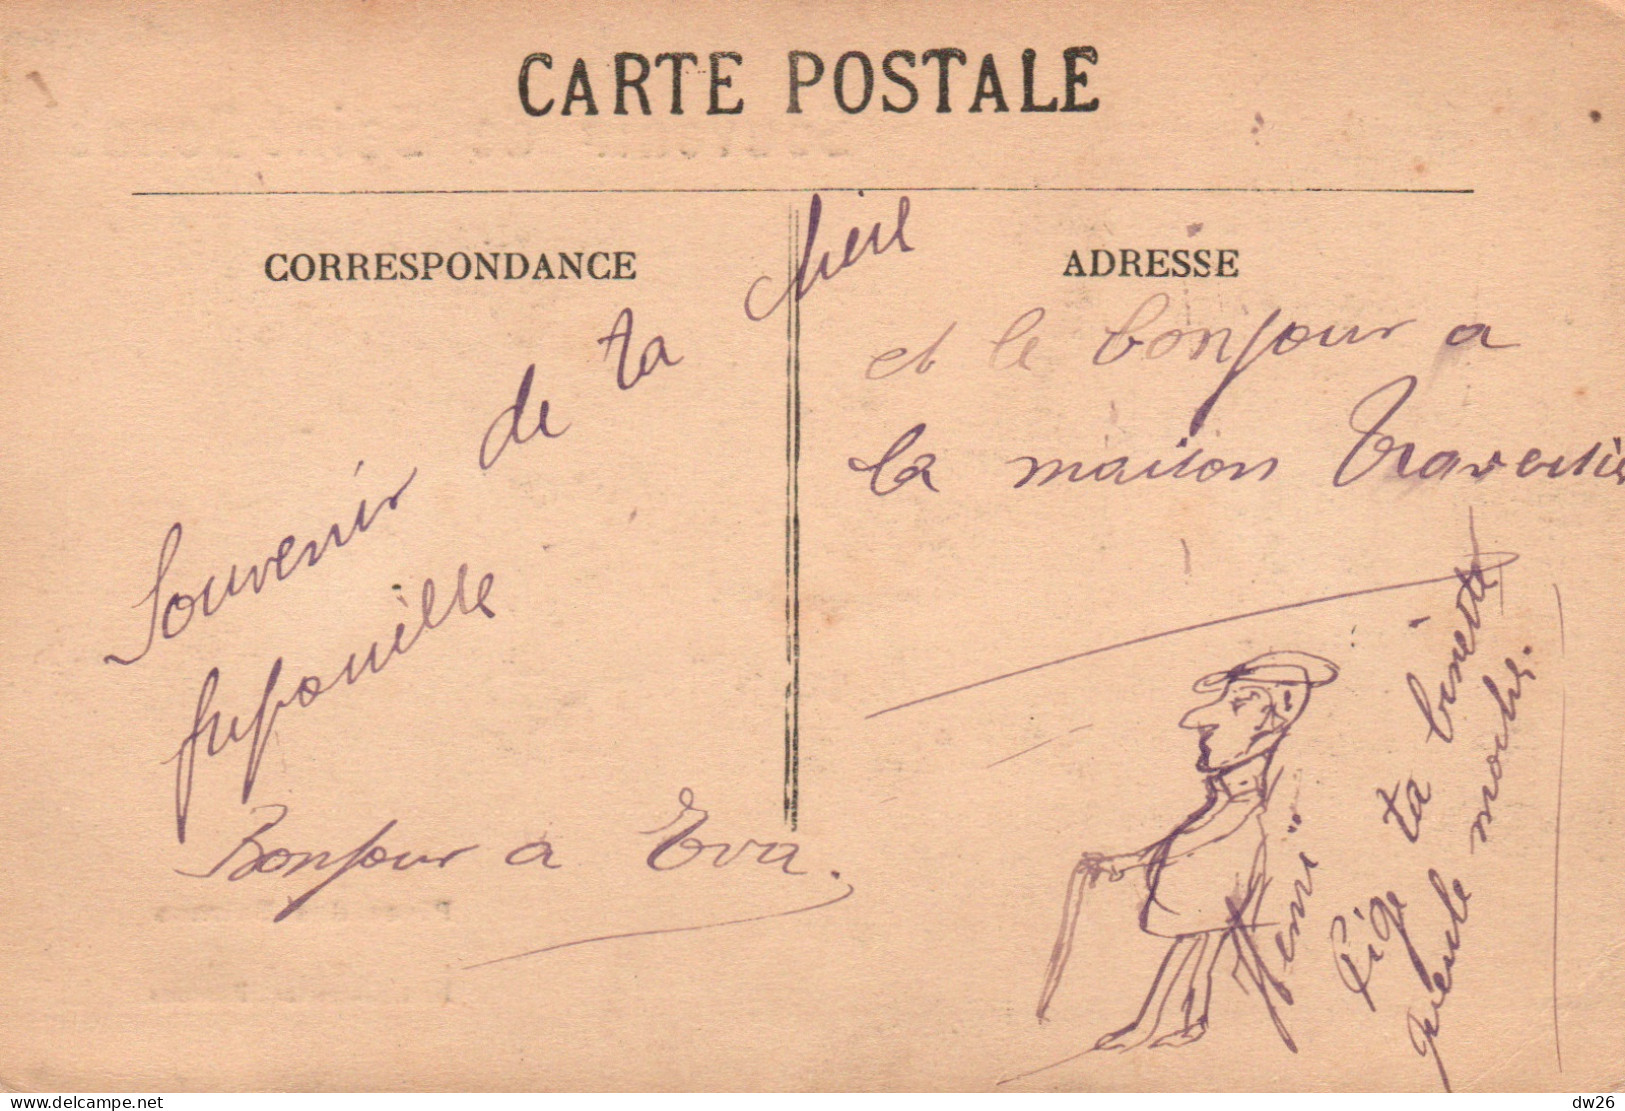 CARTE POSTALE
CORRESPONDANCE
ADRESSE
Souvenir de ta chere
fripouille
Bonjour à Eva.
et le bonjour a
la maison Traversier
Pige ta binette
gueule moche.
dw26